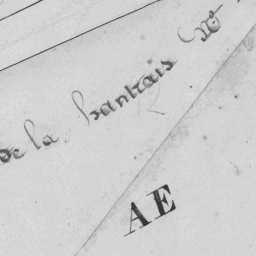 de la hantais
AE